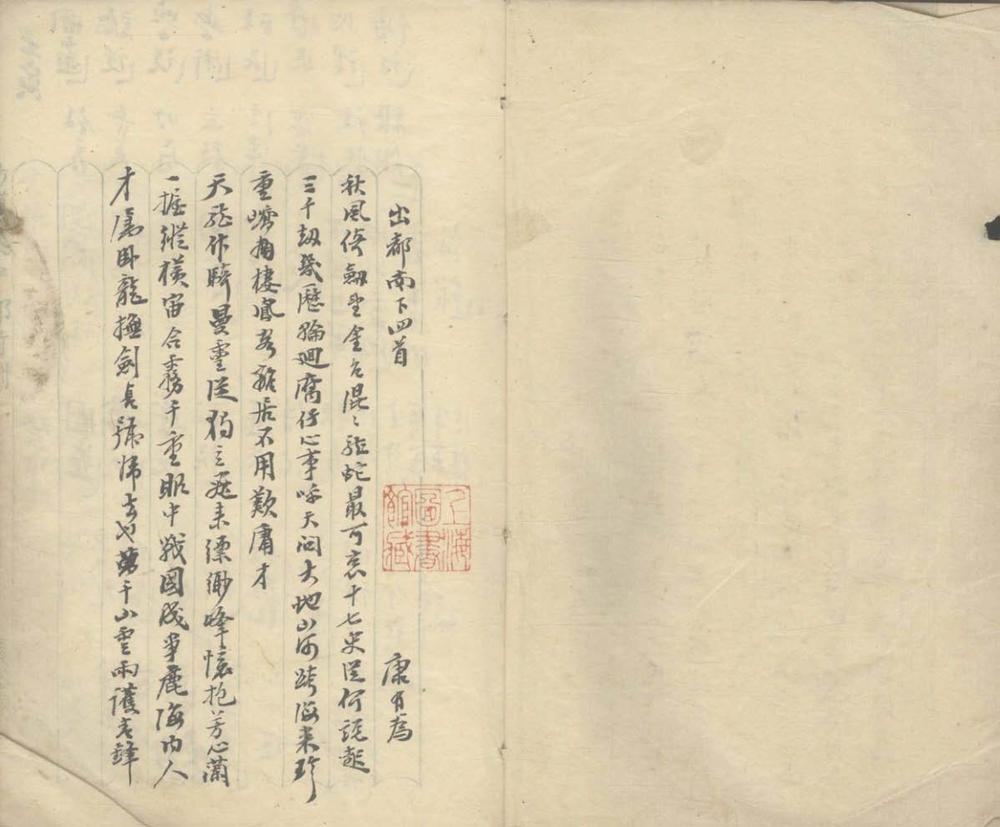 出都南下四首 康有為
秋風倚劍坐金台混々龍蛇最可哀十七史從何說起
三千劫幾歷輪迴腐儒心事呼天問大地山河跨海來珍
重樓鳳客離居不用歎庸才
天龍作騎曼靈從獨立飛來縹緲峰懷抱芳心蘭
一握縱橫宙合霧千重眼中戰國成爭鹿海內人
才屬臥龍撫劍長號歸去也千山雲雨護青鋒
上海圖書館藏